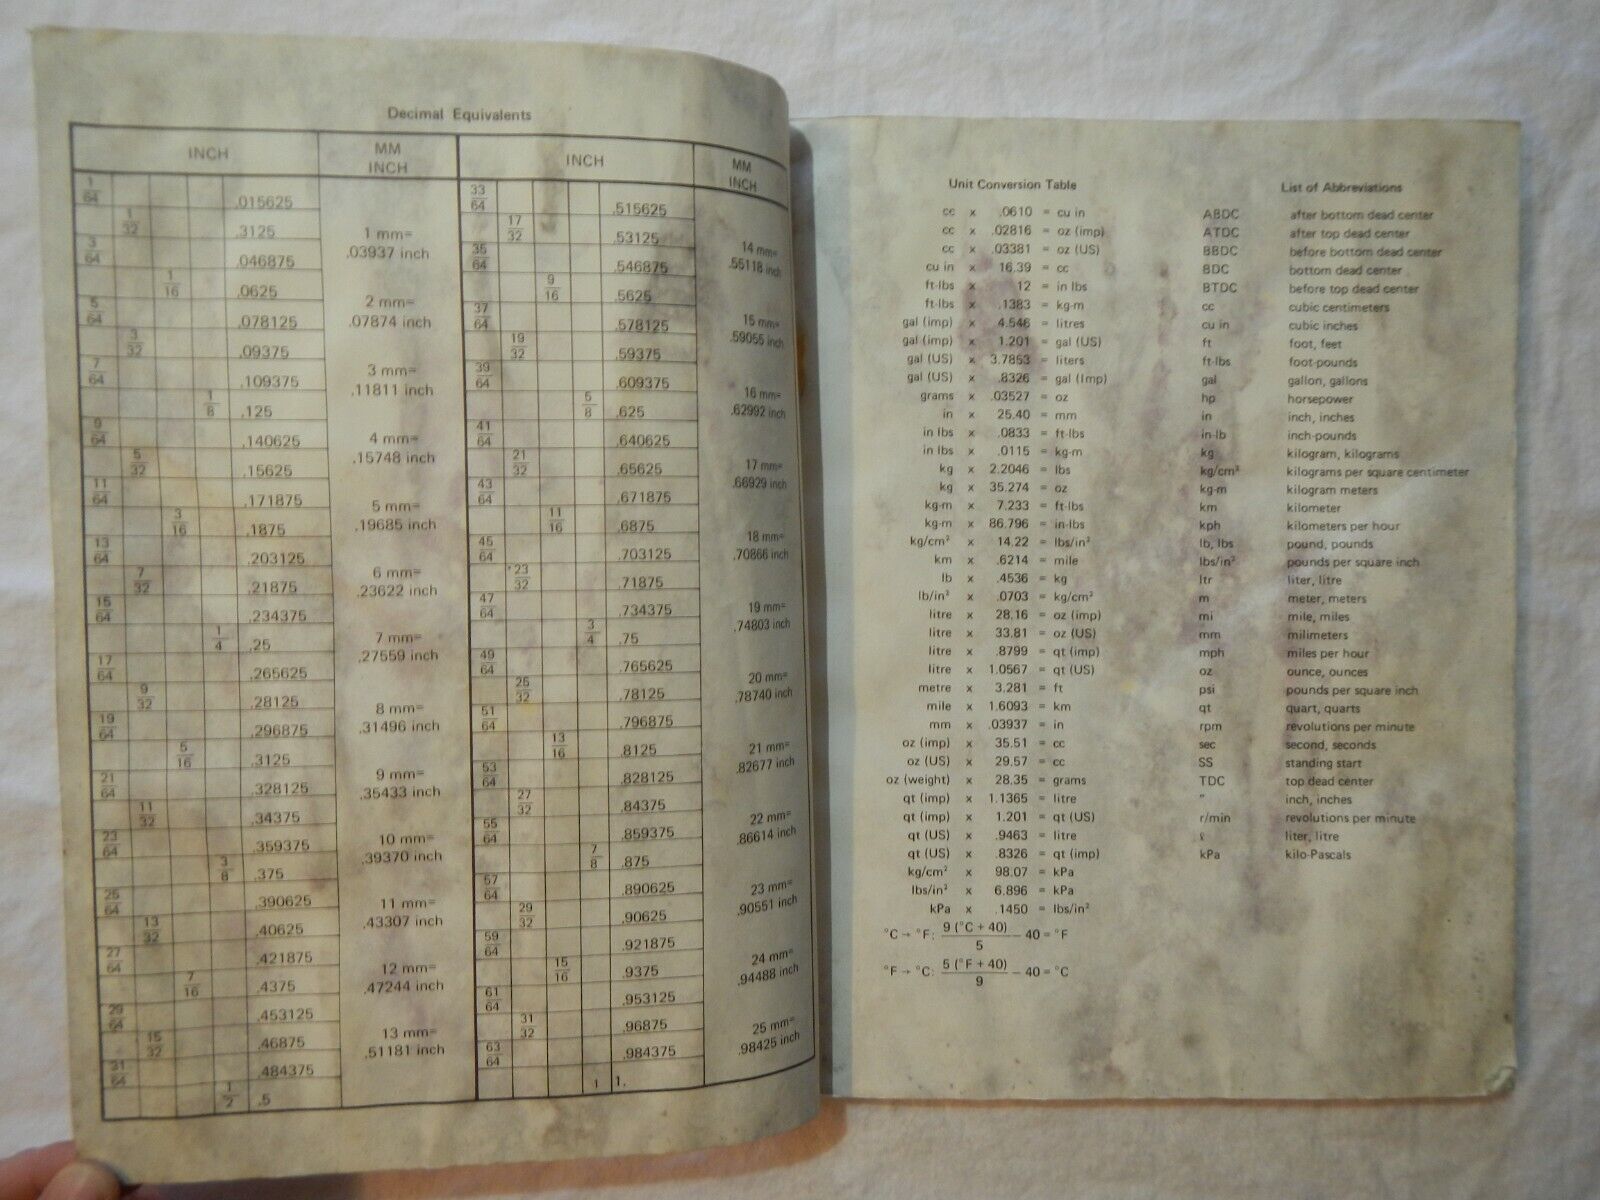 Decimal Equivalents
INCH MM INCH INCH MM INCH
1/64 .015625
1/32 .3125
3/64 .046875
1/16 .0625
5/64 .078125
3/32 .09375
7/64 .109375
1/8 .125
9/64 .140625
5/32 .15625
11/64 .171875
3/16 .1875
13/64 .203125
7/32 .21875
15/64 .234375
1/4 .25
17/64 .265625
9/32 .28125
19/64 .296875
5/16 .3125
21/64 .328125
11/32 .34375
23/64 .359375
3/8 .375
25/64 .390625
13/32 .40625
27/64 .421875
7/16 .4375
29/64 .453125
15/32 .46875
31/64 .484375
1/2 .5
1 mm=
.03937 inch
2 mm=
.07874 inch
3 mm=
.11811 inch
4 mm=
.15748 inch
5 mm=
.19685 inch
6 mm=
.23622 inch
7 mm=
.27559 inch
8 mm=
.31496 inch
9 mm=
.35433 inch
10 mm=
.39370 inch
11 mm=
.43307 inch
12 mm=
.47244 inch
13 mm=
.51181 inch
33/64 .515625
17/32 .53125
35/64 .546875
9/16 .5625
37/64 .578125
19/32 .59375
39/64 .609375
5/8 .625
41/64 .640625
21/32 .65625
43/64 .671875
11/16 .6875
45/64 .703125
23/32 .71875
47/64 .734375
3/4 .75
49/64 .765625
25/32 .78125
51/64 .796875
13/16 .8125
53/64 .828125
27/32 .84375
55/64 .859375
7/8 .875
57/64 .890625
29/32 .90625
59/64 .921875
15/16 .9375
61/64 .953125
31/32 .96875
63/64 .984375
1 1.
14 mm=
.55118 inch
15 mm=
.59055 inch
16 mm=
.62992 inch
17 mm=
.66929 inch
18 mm=
.70866 inch
19 mm=
.74803 inch
20 mm=
.78740 inch
21 mm=
.82677 inch
22 mm=
.86614 inch
23 mm=
.90551 inch
24 mm=
.94488 inch
25 mm=
.98425 inch
Unit Conversion Table
cc x .0610 = cu in
cc x .02816 = oz (imp)
cc x .03381 = oz (US)
cu in x 16.39 = cc
ft-lbs x 12 = in lbs
ft-lbs x .1383 = kg-m
gal (imp) x 4.546 = litres
gal (imp) x 1.201 = gal (US)
gal (US) x 3.7853 = liters
gal (US) x .8326 = gal (Imp)
grams x .03527 = oz
in x 25.40 = mm
in lbs x .0833 = ft-lbs
in lbs x .0115 = kg-m
kg x 2.2046 = lbs
kg x 35.274 = oz
kg-m x 7.233 = ft-lbs
kg-m x 86.796 = in-lbs
kg/cm² x 14.22 = lbs/in²
km x .6214 = mile
lb x .4536 = kg
lb/in² x .0703 = kg/cm²
litre x 28.16 = oz (imp)
litre x 33.81 = oz (US)
litre x .8799 = qt (imp)
litre x 1.0567 = qt (US)
metre x 3.281 = ft
mile x 1.6093 = km
mm x .03937 = in
oz (imp) x 35.51 = cc
oz (US) x 29.57 = cc
oz (weight) x 28.35 = grams
qt (imp) x 1.1365 = litre
qt (imp) x 1.201 = qt (US)
qt (US) x .9463 = litre
qt (US) x .8326 = qt (imp)
kg/cm² x 98.07 = kPa
lbs/in² x 6.896 = kPa
kPa x .1450 = lbs/in²
°C → °F: 9 (°C + 40)/5 – 40 = °F
°F → °C: 5 (°F + 40)/9 – 40 = °C
List of Abbreviations
ABDC after bottom dead center
ATDC after top dead center
BBDC before bottom dead center
BDC bottom dead center
BTDC before top dead center
cc cubic centimeters
cu in cubic inches
ft foot, feet
ft-lbs foot-pounds
gal gallon, gallons
hp horsepower
in inch, inches
in-lb inch-pounds
kg kilogram, kilograms
kg/cm² kilograms per square centimeter
kg-m kilogram meters
km kilometer
kph kilometers per hour
lb, lbs pound, pounds
lbs/in² pounds per square inch
ltr liter, litre
m meter, meters
mi mile, miles
mm milimeters
mph miles per hour
oz ounce, ounces
psi pounds per square inch
qt quart, quarts
rpm revolutions per minute
sec second, seconds
SS standing start
TDC top dead center
" inch, inches
r/min revolutions per minute
ℓ liter, litre
kPa kilo-Pascals